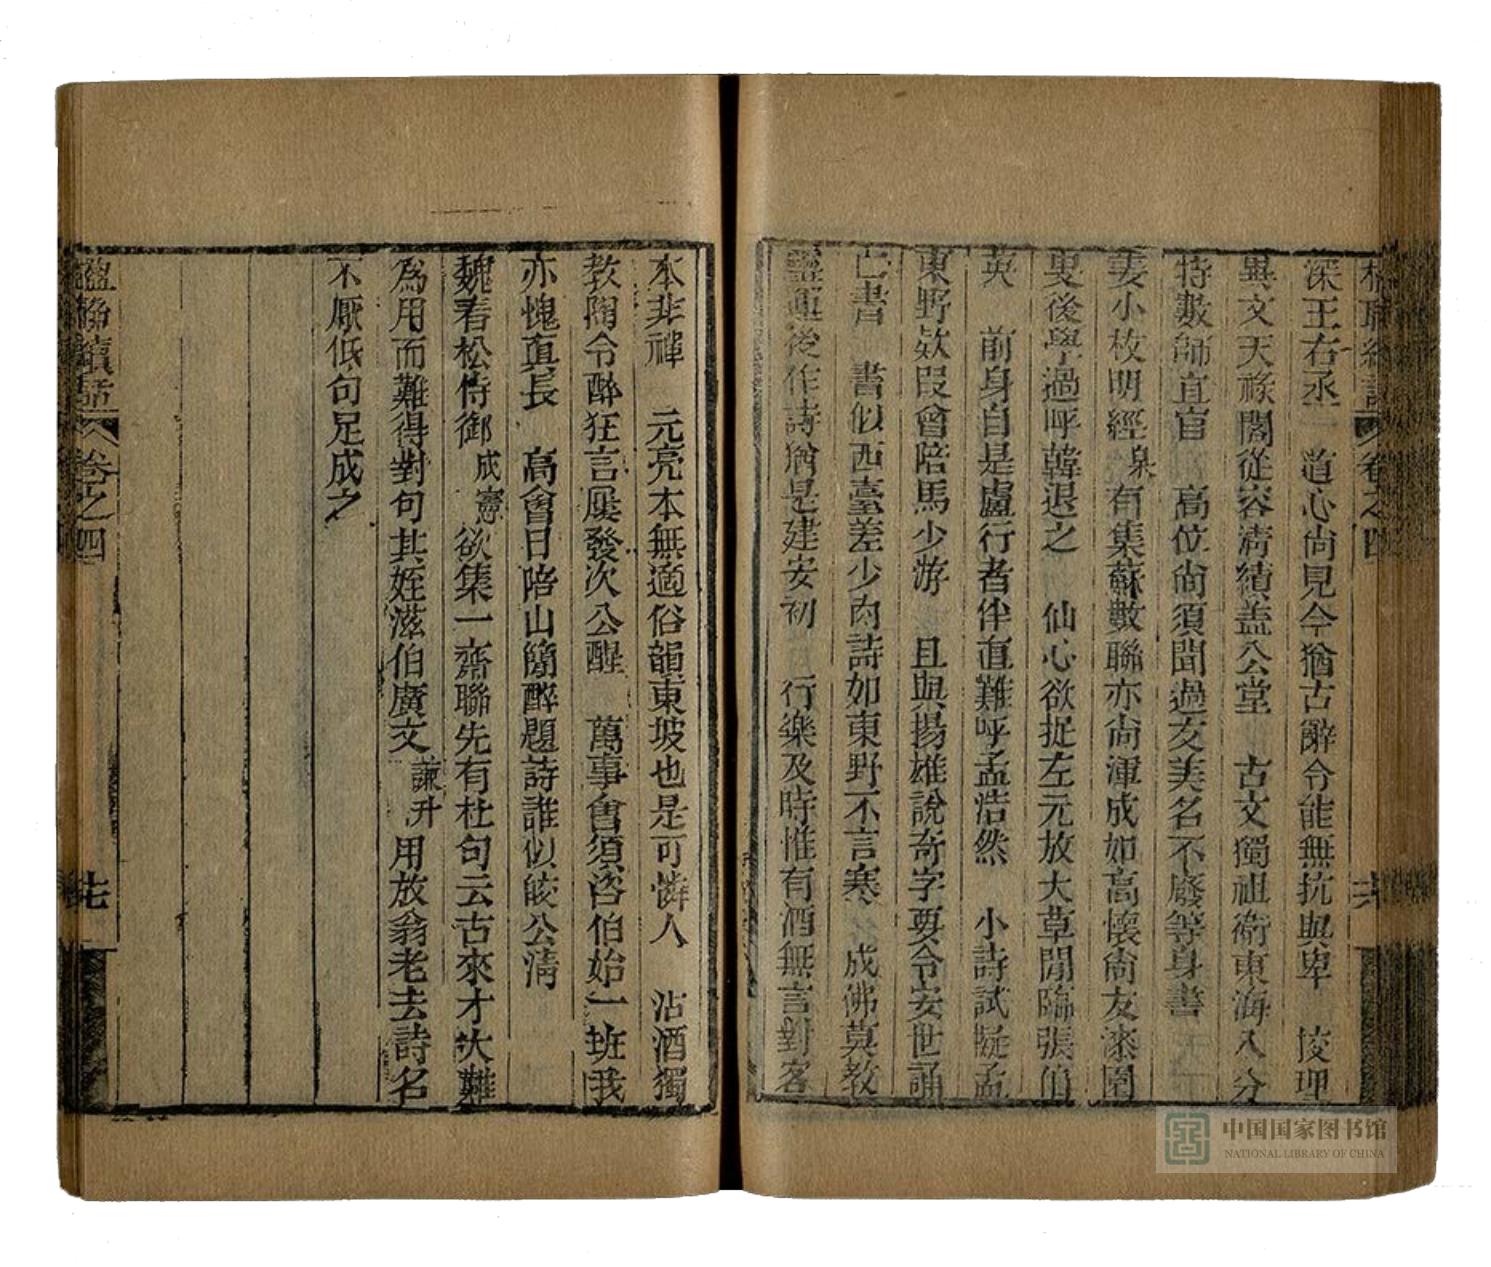 深王右丞　道心尚見今猶古辭令能無抗與卑　陵理
異文天祿閣從容淸績蓋公堂　古文獨祖衛東海八分
特數師宜官　高位尙須聞過友美名不廢等身書
姜小枚明經臯有集蘇數聯亦尙渾成如高懷尙友漆園
叟後學過呼韓退之　仙心欲捉左元放大草閒臨張伯
英　前身自是盧行者伴直難呼孟浩然　小詩試擬孟
東野欵叚曾陪馬少游　且與揚雄說奇字要令安世誦
亡書　書似西臺差少肉詩如東野不言寒　成佛莫敎
靈運後作詩猶是建安初　行樂及時惟有酒無言對客
本非禪　元亮本無適俗韻東坡也是可憐人　沽酒獨
敎陶令醉狂言屢發次公醒　萬事會須咨伯始一班我
亦愧眞長　高會日陪山簡醉題詩誰似皎公淸
魏春松侍御成憲欲集一齋聯先有杜句云古來才大難
爲用而難得對句其姪滋伯廣文謙升用放翁老去詩名
不厭低句足成之
楹聯續話　卷之四
七
中国国家图书馆
NATIONAL LIBRARY OF CHINA